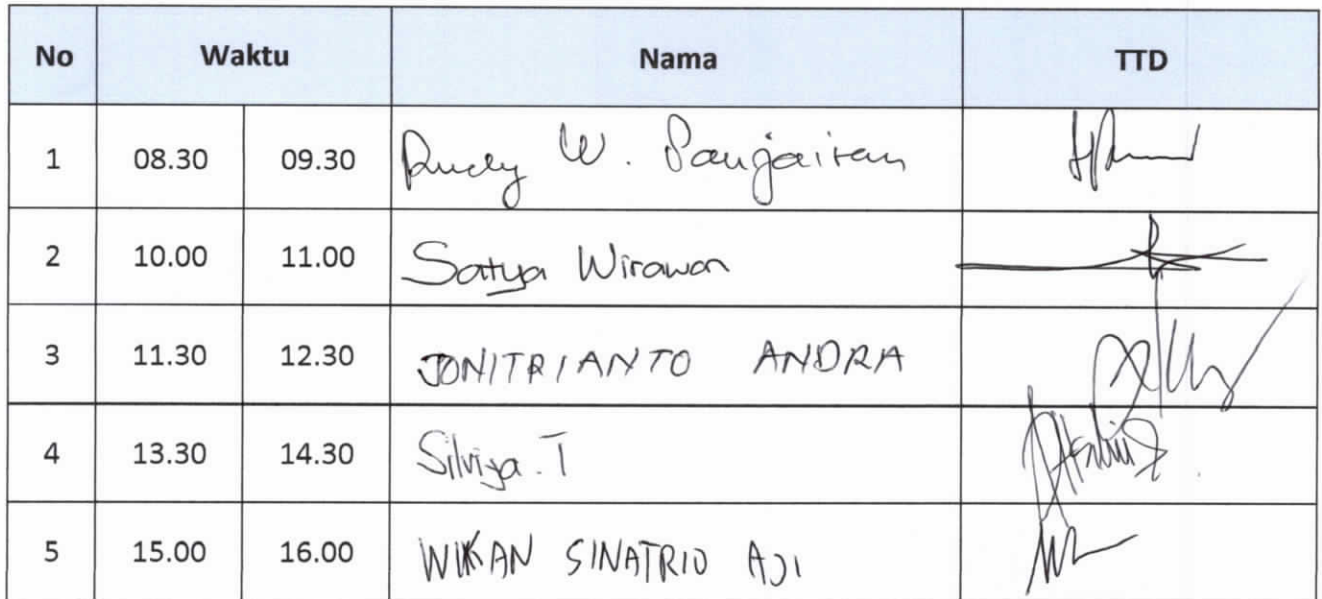 No Waktu Nama TTD
1 08.30 09.30 Rudy W. Panjaitan
2 10.00 11.00 Satya Wirawan
3 11.30 12.30 JONITRIANTO ANDRA
4 13.30 14.30 Silviya. T
5 15.00 16.00 WIKAN SINATRIO AJI